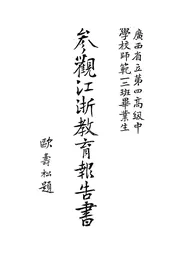 廣西省立第四高級中
學校師範一三班畢業生
參觀江浙教育報告書
歐壽松題